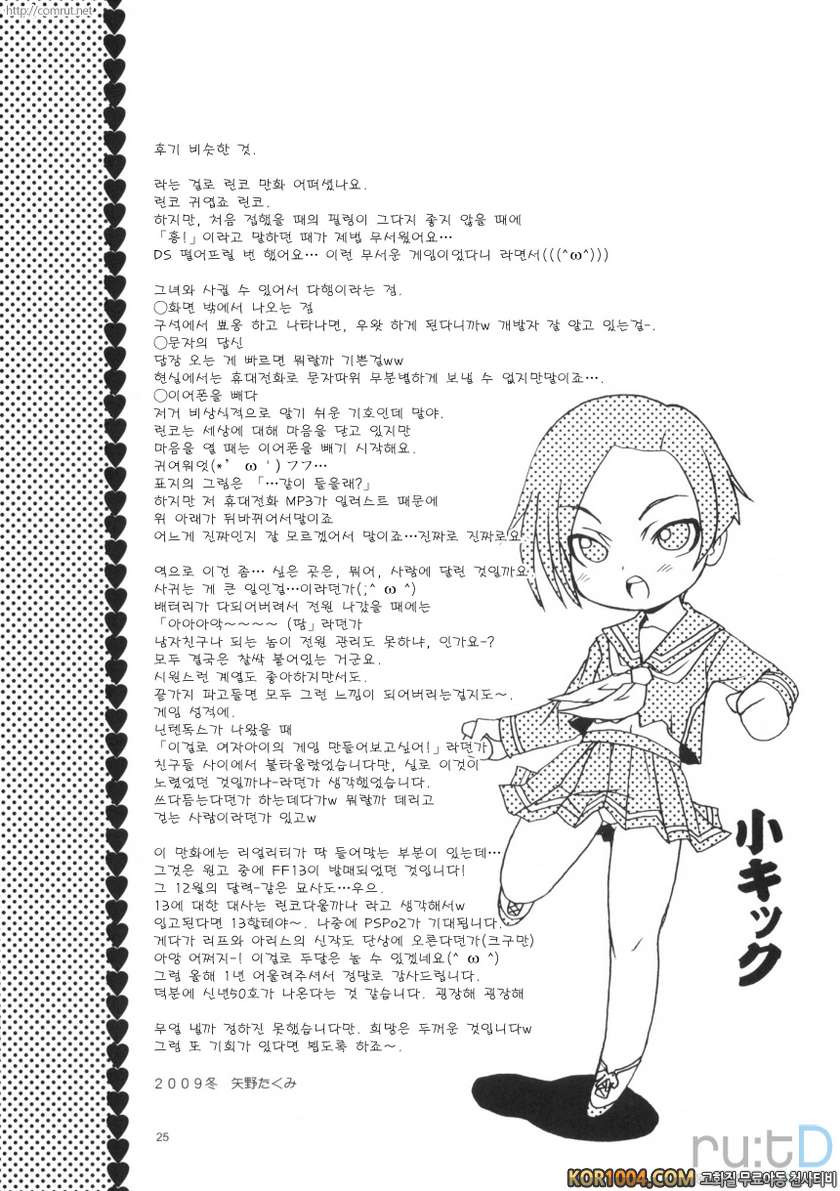 http://comrut.net
후기 비슷한 것.
라는 걸로 린코 만화 어떠셨나요.
린코 귀엽죠 린코.
하지만, 처음 접했을 때의 필링이 그다지 좋지 않을 때에
「흥!」이라고 말하던 때가 제법 무서웠어요…
DS 떨어뜨릴 번 했어요… 이런 무서운 게임이었다니 라면서(((^ω^)))
그녀와 사귈 수 있어서 다행이라는 점.
○화면 밖에서 나오는 점
구석에서 뾰옹 하고 나타나면, 우왓 하게 된다니까w 개발자 잘 알고 있는걸-.
○문자의 답신
답장 오는 게 빠르면 뭐랄까 기쁜걸ww
현실에서는 휴대전화로 문자따위 무분별하게 보낼 수 없지만말이죠….
○이어폰을 빼다
저거 비상식적으로 알기 쉬운 기호인데 말야.
린코는 세상에 대해 마음을 닫고 있지만
마음을 열 때는 이어폰을 빼기 시작해요.
귀여워엇(*’ ω ‘) フフ…
표지의 그림은 「…같이 들을래?」
하지만 저 휴대전화 MP3가 일러스트 때문에
위 아래가 뒤바뀌어서말이죠
어느게 진짜인지 잘 모르겠어서 말이죠…진짜로 진짜로요
역으로 이건 좀… 싶은 곳은, 뭐어, 사람에 달린 것일까요
사귀는 게 큰 일인걸…이라던가(;^ ω ^)
배터리가 다되어버려서 전원 나갔을 때에는
「아아아악~~~~ (땀」라던가
남자친구나 되는 놈이 전원 관리도 못하냐, 인가요-?
모두 결국은 찰싹 붙어있는 거군요.
시원스런 계열도 좋아하지만서도.
끝가지 파고들면 모두 그런 느낌이 되어버리는걸지도~.
게임 성격에.
닌텐독스가 나왔을 때
「이걸로 여자아이의 게임 만들어보고싶어!」라던가
친구들 사이에서 불타올랐었습니다만, 실로 이것이
노렸었던 것일까나-라던가 생각했었습니다.
쓰다듬는다던가 하는데다가w 뭐랄까 데리고
걷는 사람이라던가 있고w
이 만화에는 리얼리티가 딱 들어맞는 부분이 있는데…
그것은 원고 중에 FF13이 발매되었던 것입니다!
그 12월의 달력-같은 묘사도…우으.
13에 대한 대사는 린코다울까나 라고 생각해서w
입고된다면 13할테야~. 나중에 PSPo2가 기대됩니다.
게다가 러프와 아리스의 신작도 단상에 오른다던가(크구만)
아앙 어쩌지-! 이걸로 두달은 놀 수 있겠네요(^ ω ^)
그럼 올해 1년 어울려주셔서 정말로 감사드립니다.
덕분에 신년50호가 나온다는 것 같습니다. 굉장해 굉장해
무얼 낼까 정하진 못했습니다만. 희망은 두꺼운 것입니다w
그럼 또 기회가 있다면 뵙도록 하죠~.
2009冬 矢野たくみ
小キック
25
ru:tD
KOR1004.COM 고화질 무료야동 천사티비